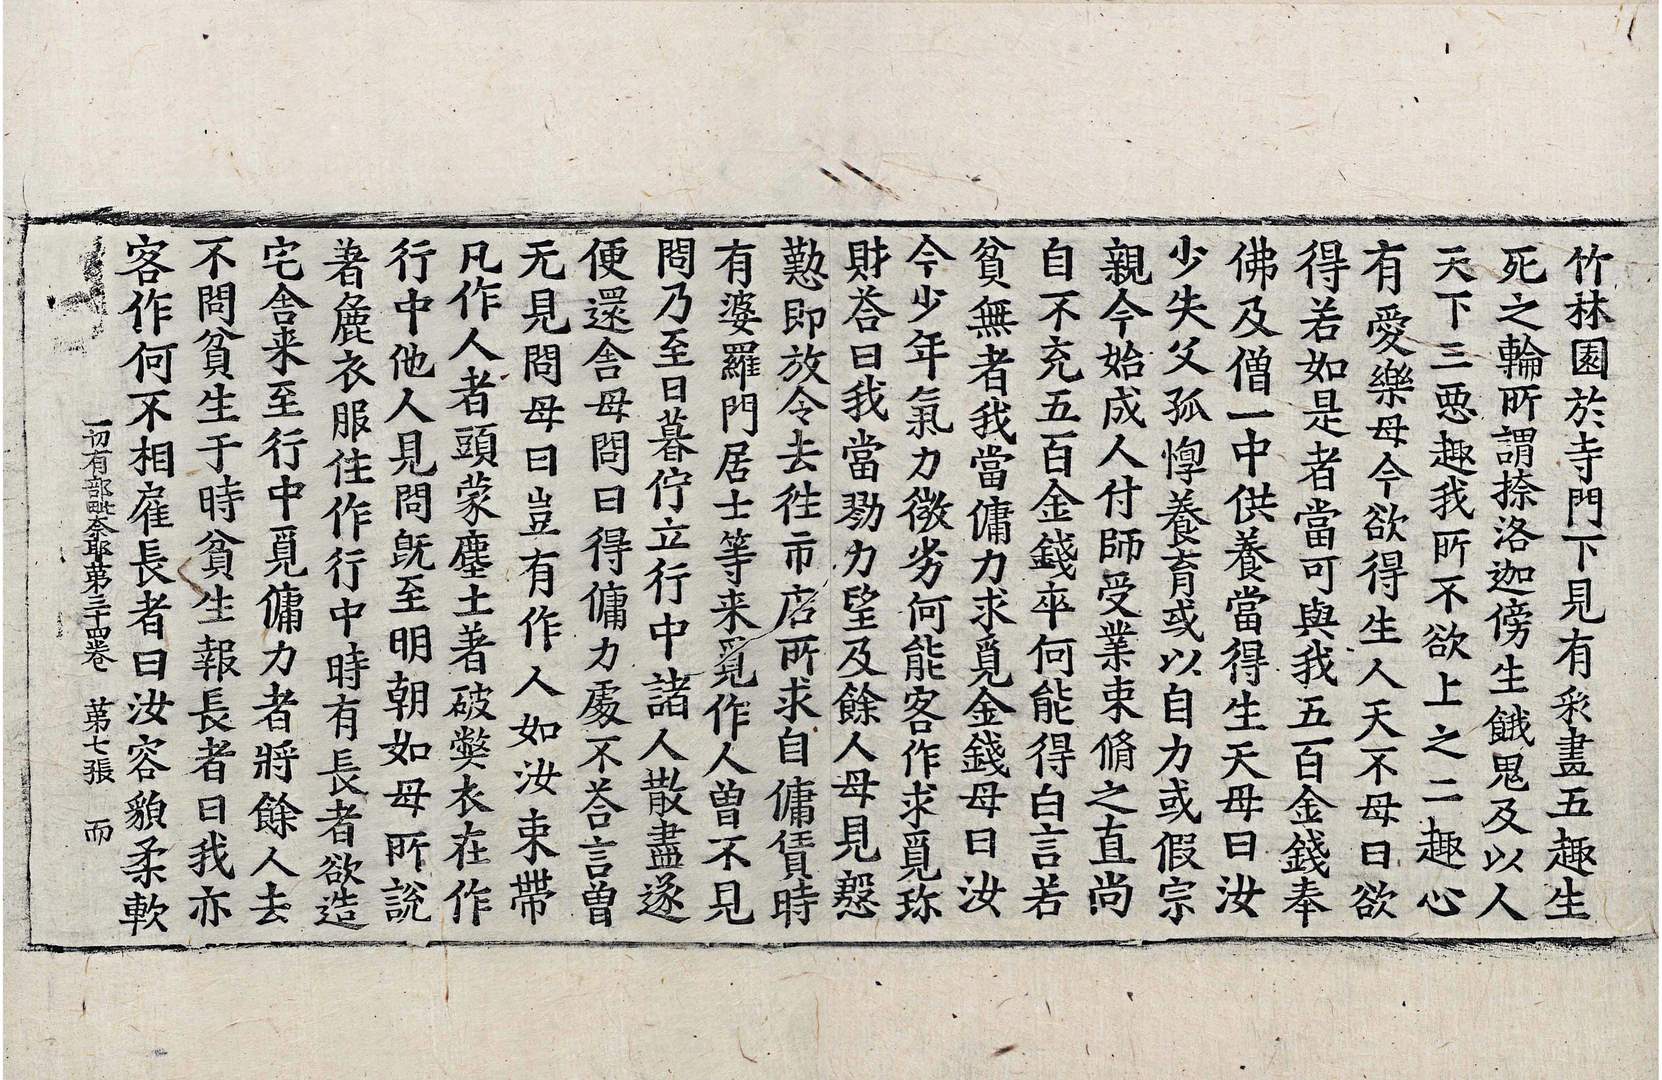 竹林園於寺門下見有彩畫五趣生
死之輪所謂捺洛迦傍生餓鬼及以人
天下三惡趣我所不欲上之二趣心
有愛樂母今欲得生人天不母曰欲
得若如是者當可與我五百金錢奉
佛及僧一中供養當得生天母曰汝
少失父孤惸養育或以自力或假宗
親今始成人付師受業束脩之直尚
自不充五百金錢卒何能得白言若
貧無者我當傭力求覓金錢母曰汝
今少年氣力微劣何能客作求覓珎
財荅曰我當勠力望及餘人母見慇
懃即放令去往市店所求自傭賃時
有婆羅門居士等来覓作人曾不見
問乃至日暮佇立行中諸人散盡遂
便還舍母問曰得傭力處不荅言曾
无見問母曰豈有作人如汝束帶
凡作人者頭蒙塵土著破獘衣在作
行中他人見問旣至明朝如母所説
著麁衣服住作行中時有長者欲造
宅舍来至行中覓傭力者將餘人去
不問貧生于時貧生報長者曰我亦
客作何不相雇長者曰汝容貌柔軟
一切有部毗奈耶第三十四卷 第七張 而